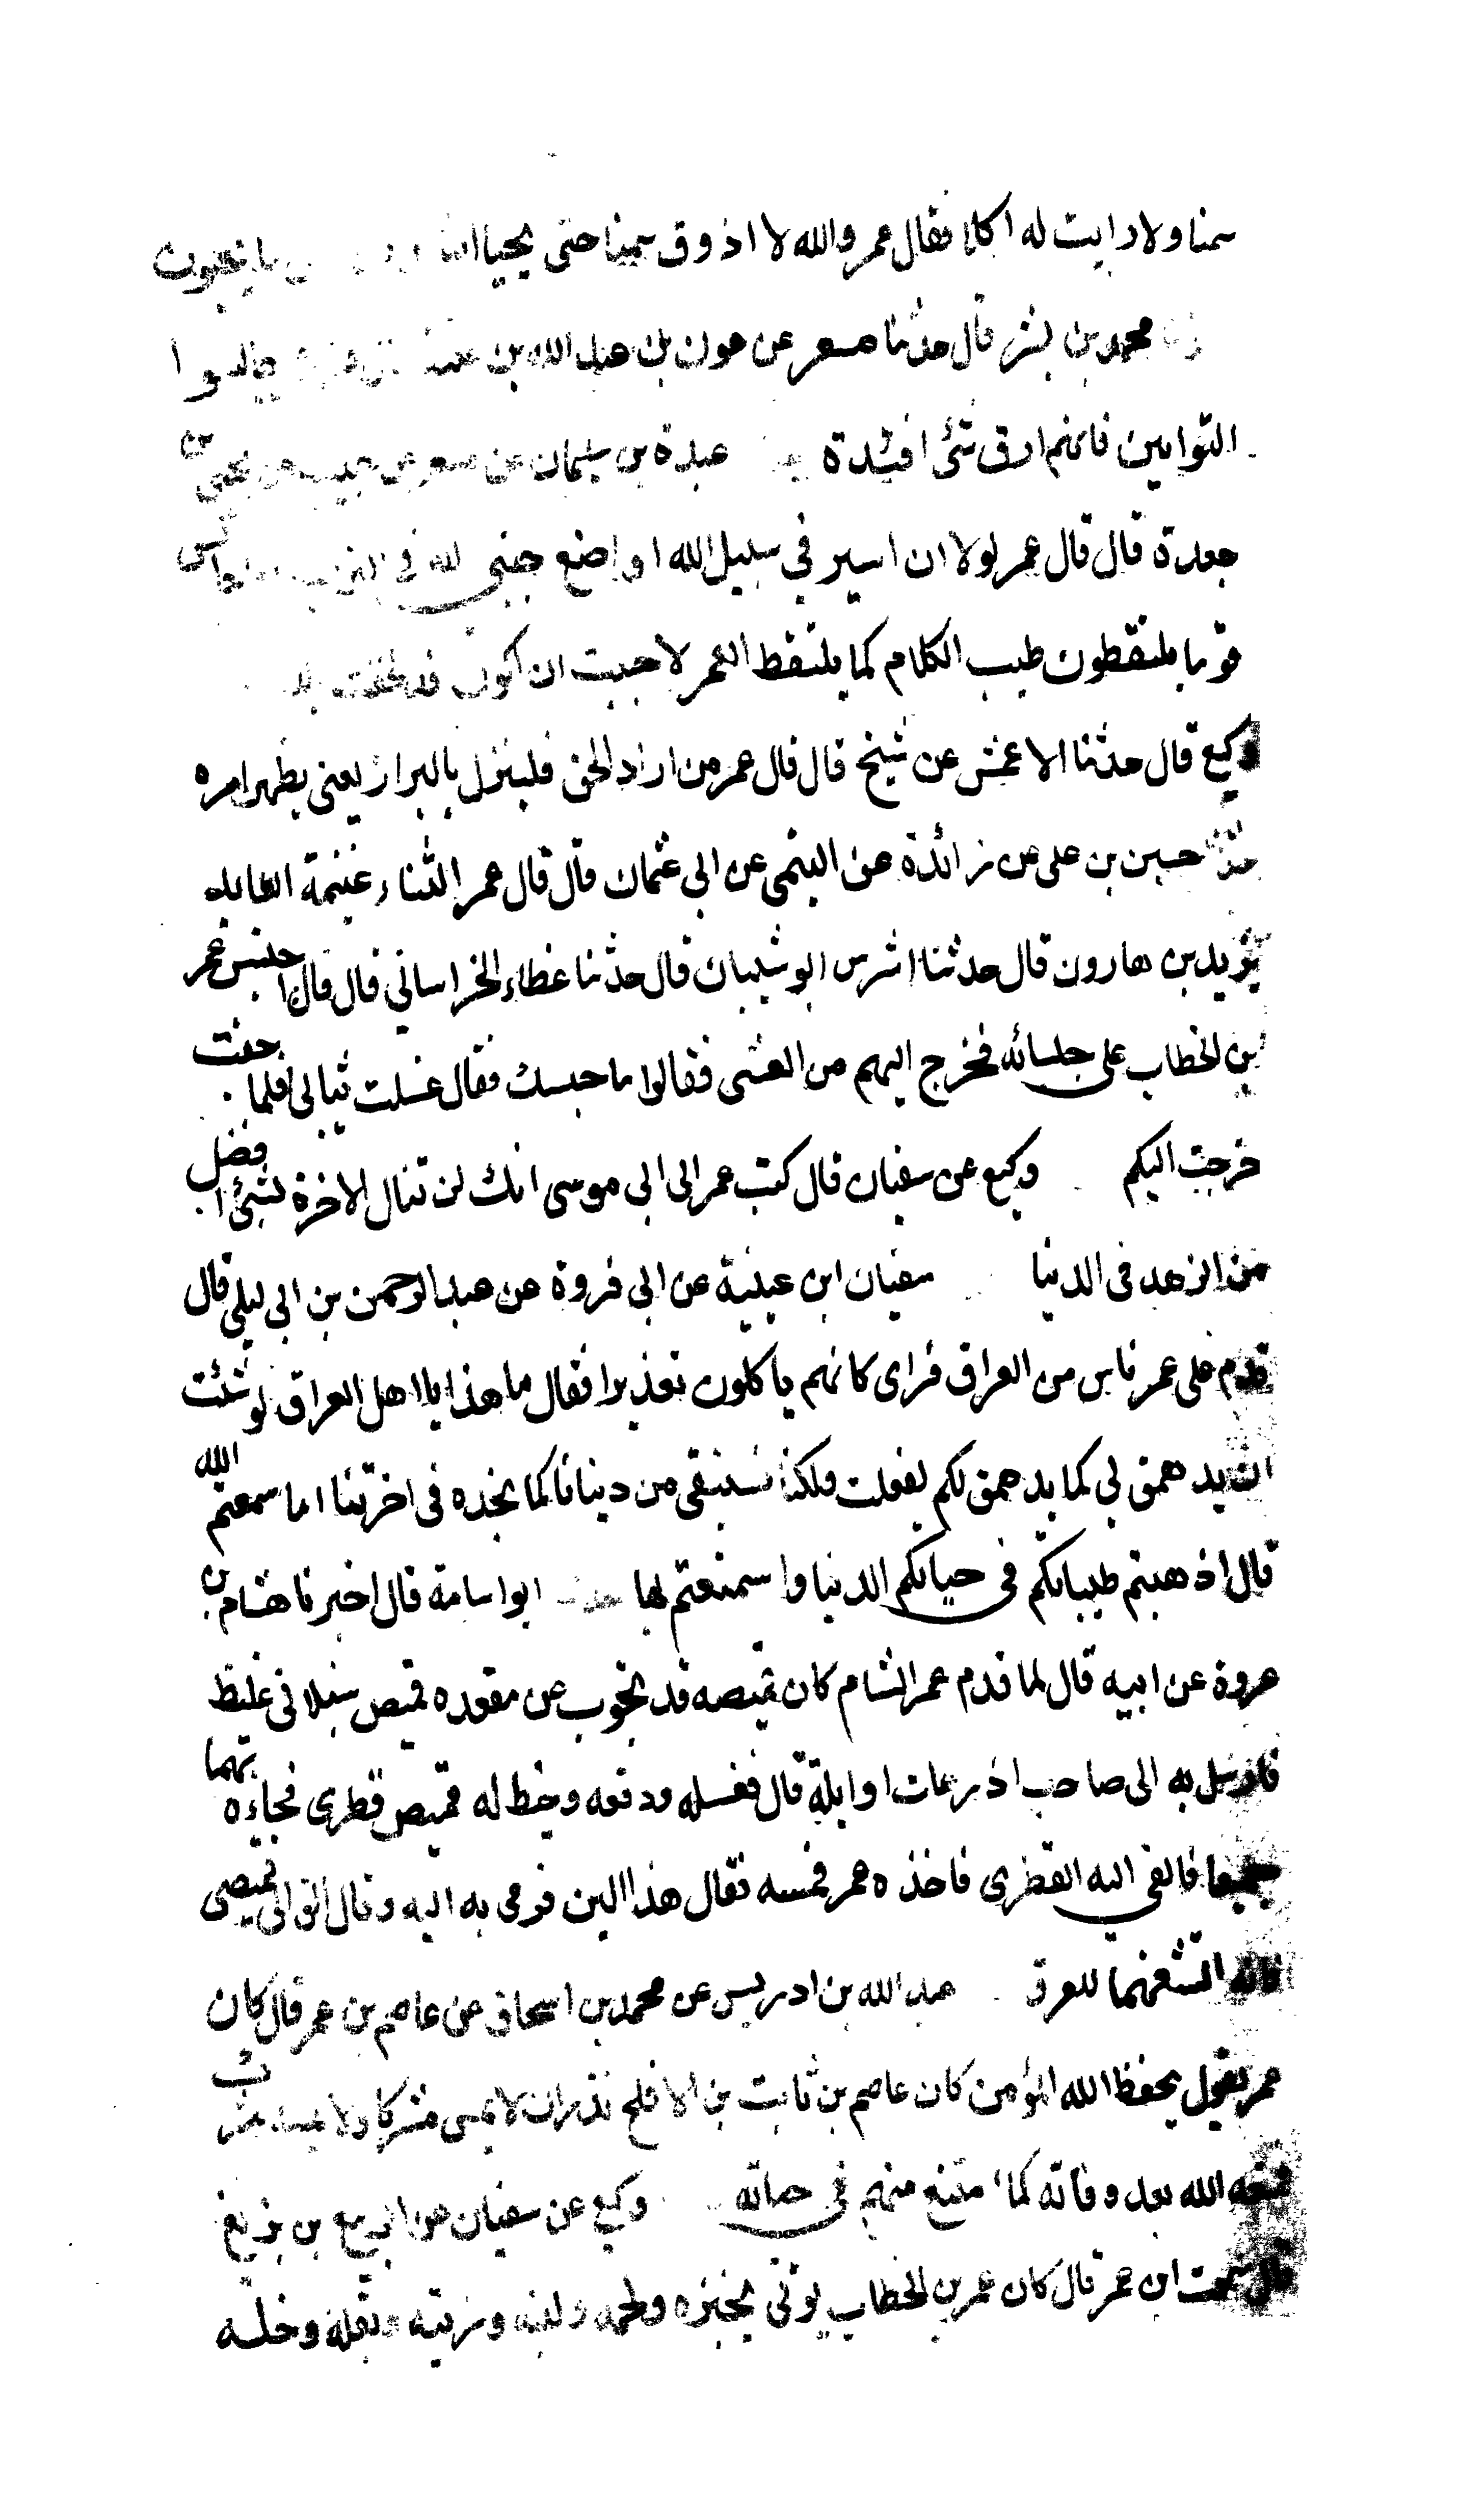 سمنا ولا رايت له اكلا فقال عمر والله لا اذوق سمنا حتى يحيا الناس ما يحيون
محمد بن بشر قال حدثنا مسعر عن عون بن عبد الله بن عتبة جالسوا
التوابين فانهم ارق شئ افئدة عبدة بن سليمان عن مسعر عن حبيب عن يحيى بن
جعدة قال قال عمر لولا ان اسير في سبيل الله او اضع جبني لله في التراب او اجالس
قوما يلتقطون طيب الكلام كما يلتقط التمر لاحببت ان اكون قد لحقت بالله
وكيع قال حدثنا الاعمش عن شيخ قال قال عمر من اراد الحق فلينزل بالبراز يعني يظهر امره
حدثنا حسين بن على عن زائدة عن التيمى عن ابى عثمان قال قال عمر الشتاء غنيمة العابد
يزيد بن هارون قال حدثنا اشرس ابو شيبان قال حدثنا عطاء الخراساني قال قال احتبس عمر
بن الخطاب على جلسائه فخرج اليهم من العشى فقالوا ما حبسك فقال غسلت ثيابى فلما جفت
خرجت اليكم وكيع عن سفيان قال كتب عمر الى ابى موسى انك لن تنال الاخرة بشئ افضل
من الزهد فى الدنيا سفيان ابن عيينة عن ابى فروة عن عبد الرحمن بن ابى ليلى قال
قدم على عمر ناس من العراق فراى كانهم ياكلون تعذيرا فقال ما هذا يا اهل العراق لو شئت
ان يدهمق لى كما يدهمق لكم لفعلت ولكنا نستبقى من دنيانا كما نجده فى اخرتنا اما سمعتم الله
قال اذهبتم طيباتكم فى حياتكم الدنيا واستمتعتم بها حدثنا ابو اسامة قال اخبرنا هشام بن
عروة عن ابيه قال لما قدم عمر الشام كان قميصه قد تجوب عن مقعده قميص سنبلانى غليظ
فارسل به الى صاحب اذرعات او ايلة قال فغسله ورقعه وخيط له قميص قطرى فجاءه بهما
جميعا فالقى اليه القطرى فاخذه عمر فمسه فقال هذا الين فرمى به اليه وقال الق الى قميصى
فانه انشفهما للعرق عبد الله بن ادريس عن محمد بن اسحاق عن عاصم بن عمر قال كان
عمر يقول يحفظ الله المؤمن كان عاصم بن ثابت بن الافلح نذر ان لا يمس مشركا ولا يمسه مشرك
فمنعه الله بعد وفاته كما امتنع منهم فى حياته وكيع عن سفيان عن الربيع بن بزيع
قال سمعت ابن عمر قال كان عمر بن الخطاب يؤتى بخبزه ولحمه ولبنه وزيته وبقله وخله